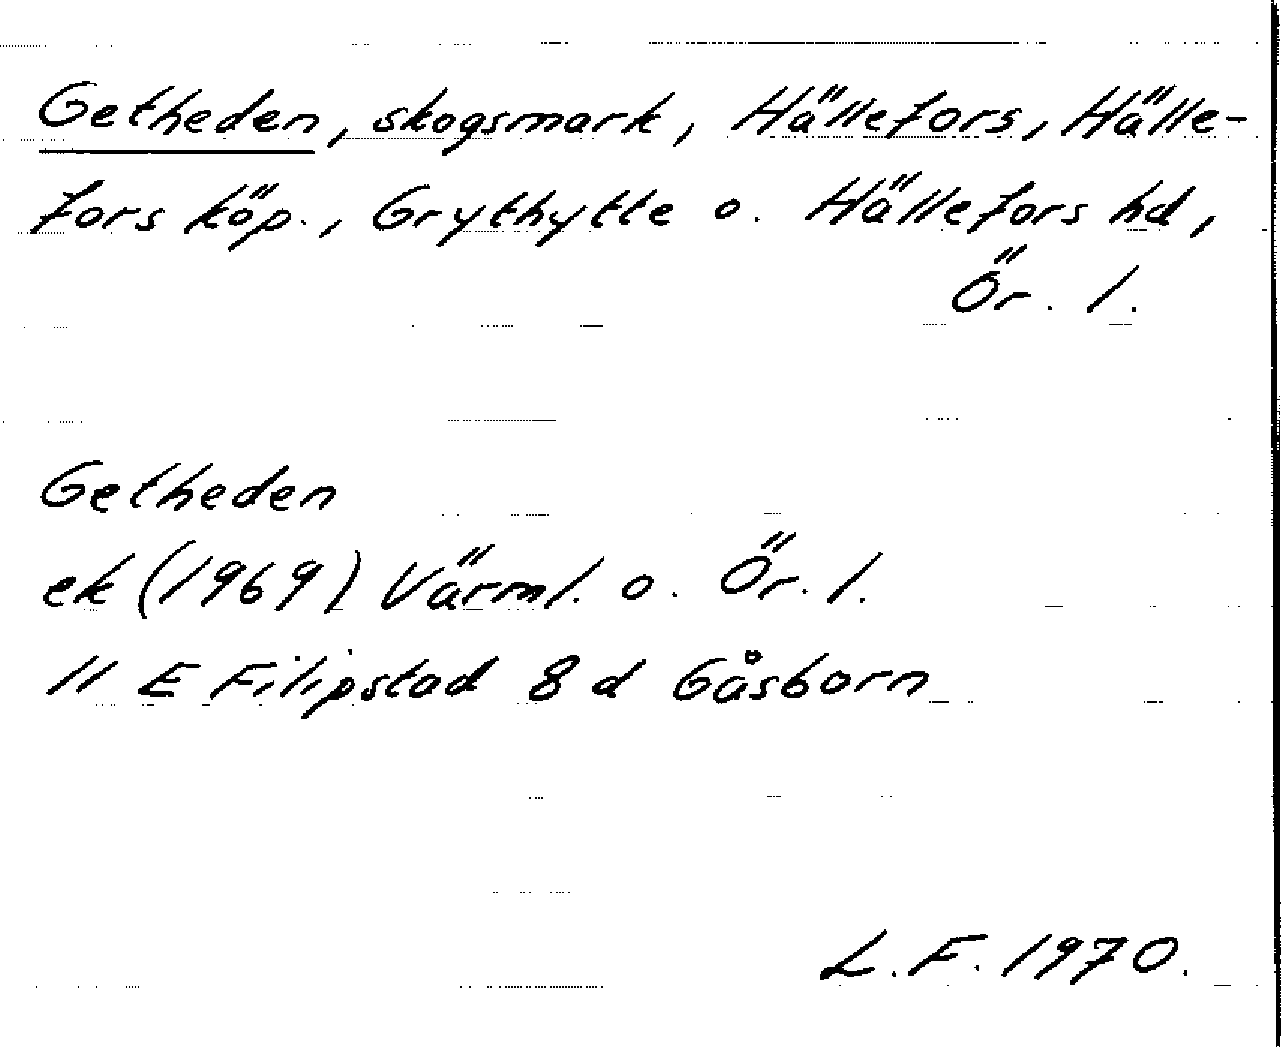 Getheden, skogsmark, Hällefors, Hälle-
fors köp., Grythytte o. Hällefors hd,
Ör. l.
Getheden
ek (1969) Värml. o. Ör. l.
11 E Filipstad 8 d Gåsborn
L. F. 1970.